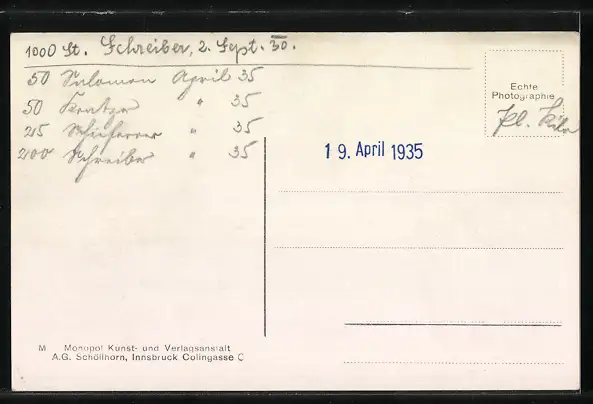 1000 St. Schreiber, 2. Sept. 30.
50 Salomon April 35
50 Kratzer " 35
25 " 35
200 Schreiber " 35
Echte
Photographie
19. April 1935
M Monopol Kunst- und Verlagsanstalt
A.G. Schöllhorn, Innsbruck Colingasse